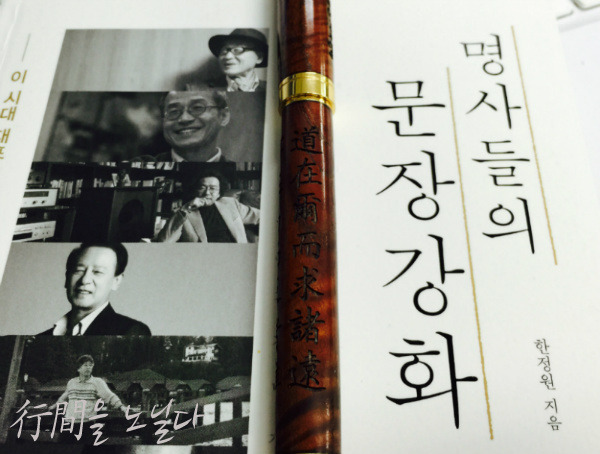 이 시대 대표
명사들의
문장강화
한정원 지음
道在爾而求諸遠
行間을 노닐다